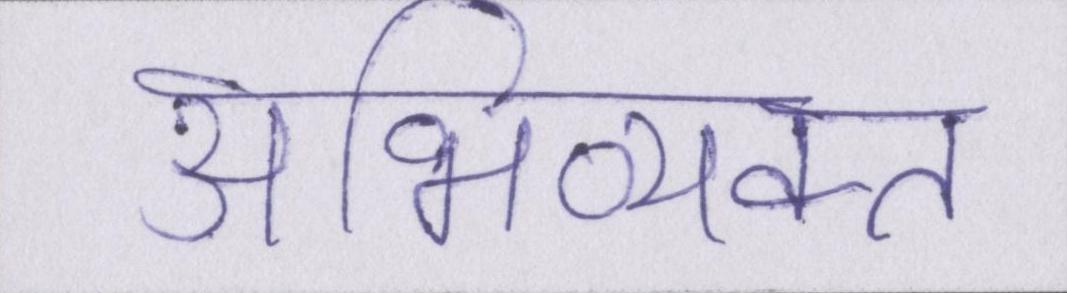 अभिव्यक्त